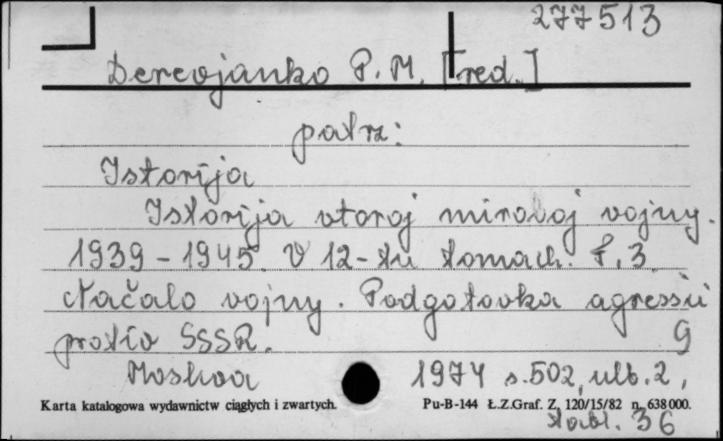 277513
Derevjanko P. M. [red.]
patrz:
Istorija
Istorija vtoroj mirovoj vojny.
1939-1945. V 12-tu tomach. T. 3.
Načalo vojny. Podgotovka agressii
protiv SSSR. 9
Moskva 1974 s. 502, ulb. 2,
Karta katalogowa wydawnictw ciągłych i zwartych. Pu-B-144 Ł.Z.Graf. Z. 120/15/82 n. 638000.
tabl. 36